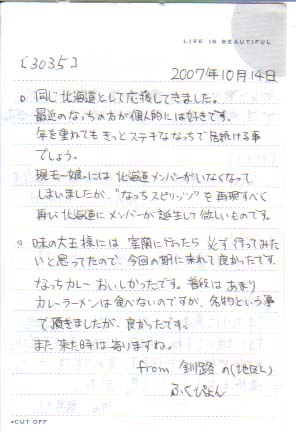 LIFE IS BEAUTIFUL
[3035]
2007年10月14日
o 同じ北海道として応援してきました。
最近のなっちの方が個人的には好きです。
年を重ねてもきっとステキななっちで居続ける事
でしょう。
現モー娘。には北海道メンバーがいなくなって
しまいましたが、"なっちスピリッツ"を再現すべく
再び北海道にメンバーが誕生して欲しいものです。
o 味の大王様には 室蘭に行ったら 必ず行ってみた
いと思ってたので、今回の期に来れて良かったです。
なっちカレーおいしかったです。普段はあまり
カレーラーメンは食べないのですが、名物という事
で頂きましたが、良かったです。
また来た時は寄りますね。
from 釧路 の(地区L)
ふくぴょん
CUT OFF